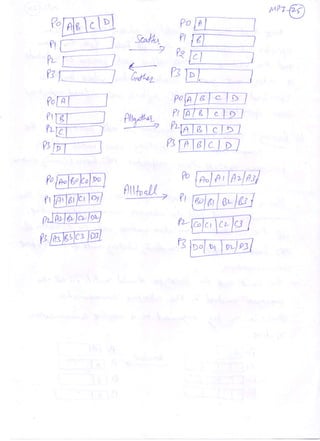 MPI-25
P0 A B C D Scatter P0 A
P1 P1 B
P2 P2 C
P3 Gather P3 D
P0 A P0 A B C D
P1 B Allgather P1 A B C D
P2 C P2 A B C D
P3 D P3 A B C D
P0 A0 B0 C0 D0 P0 A0 A1 A2 A3
P1 A1 B1 C1 D1 Alltoall P1 B0 B1 B2 B3
P2 A2 B2 C2 D2 P2 C0 C1 C2 C3
P3 A3 B3 C3 D3 P3 D0 D1 D2 D3